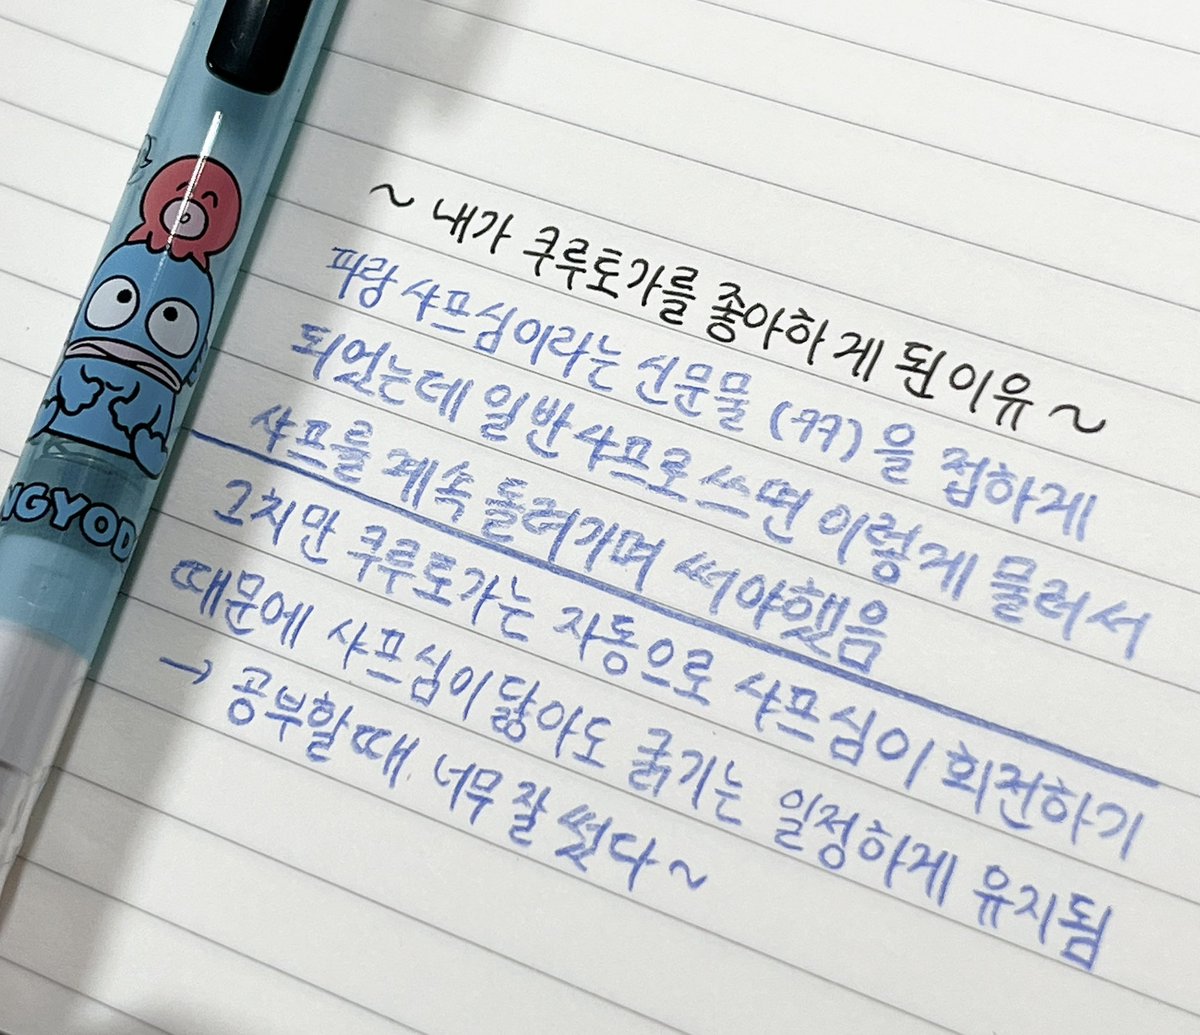 NGYOD
~ 내가 쿠루토가를 좋아하게 된 이유 ~
파랑 샤프심이라는 신문물 (ㅋㅋ)을 접하게
되었는데 일반샤프로 쓰면 이렇게 물러서
샤프를 계속 돌려가며 써야했음
그치만 쿠루토가는 자동으로 샤프심이 회전하기
때문에 샤프심이 닳아도 굵기는 일정하게 유지됨
→ 공부할때 너무 잘 썼다~